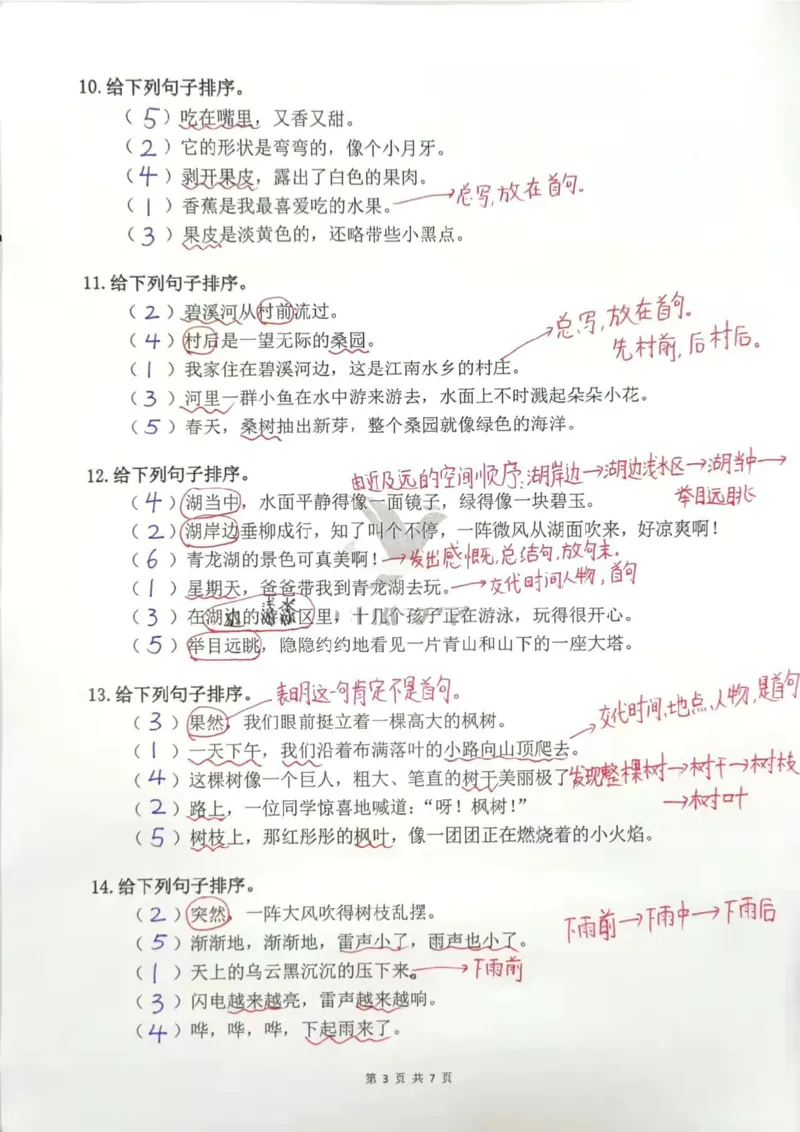 10.给下列句子排序。
（5）吃在嘴里，又香又甜。
（2）它的形状是弯弯的，像个小月牙。
（4）剥开果皮，露出了白色的果肉。
（1）香蕉是我最喜爱吃的水果。→总写，放在首句。
（3）果皮是淡黄色的，还略带些小黑点。
11.给下列句子排序。
（2）碧溪河从村前流过。
（4）村后是一望无际的桑园。
总写，放在首句。
先村前，后村后。
（1）我家住在碧溪河边，这是江南水乡的村庄。
（3）河里一群小鱼在水中游来游去，水面上不时溅起朵朵小花。
（5）春天，桑树抽出新芽，整个桑园就像绿色的海洋。
12.给下列句子排序。
由近及远的空间顺序：湖岸边→湖边浅水区→湖当中→
举目远眺
（4）湖当中，水面平静得像一面镜子，绿得像一块碧玉。
（2）湖岸边垂柳成行，知了叫个不停，一阵微风从湖面吹来，好凉爽啊！
（6）青龙湖的景色可真美啊！→发出感慨，总结句，放句末。
（1）星期天，爸爸带我到青龙湖去玩。→交代时间人物，首句
（3）在湖边的浅水区里，十几个孩子正在游泳，玩得很开心。
（5）举目远眺，隐隐约约地看见一片青山和山下的一座大塔。
13.给下列句子排序。
表明这一句肯定不是首句。
（3）果然，我们眼前挺立着一棵高大的枫树。
交代时间，地点，人物，是首句
（1）一天下午，我们沿着布满落叶的小路向山顶爬去。
（4）这棵树像一个巨人，粗大、笔直的树干美丽极了
发现整棵树→树干→树枝
→树叶
（2）路上，一位同学惊喜地喊道：“呀！枫树！”
（5）树枝上，那红彤彤的枫叶，像一团团正在燃烧着的小火焰。
14.给下列句子排序。
（2）突然，一阵大风吹得树枝乱摆。
下雨前→下雨中→下雨后
（5）渐渐地，渐渐地，雷声小了，雨声也小了。
（1）天上的乌云黑沉沉的压下来。→下雨前
（3）闪电越来越亮，雷声越来越响。
（4）哗，哗，哗，下起雨来了。
第 3 页 共 7 页